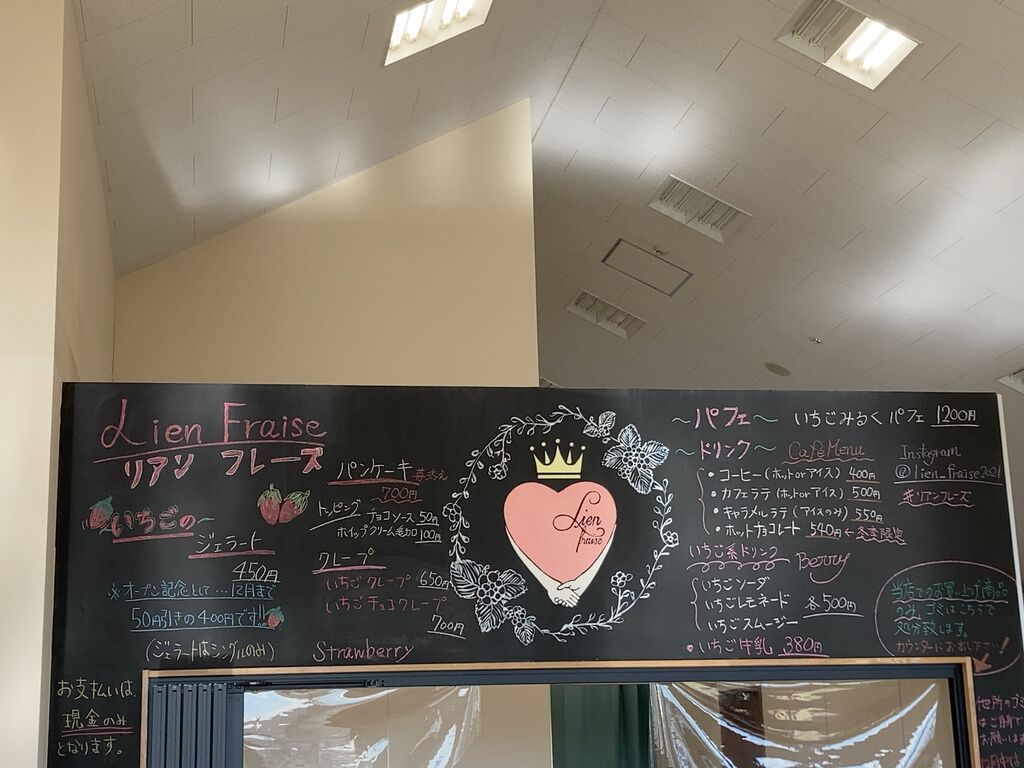 Lien Fraise
リアン フレーズ
いちごの〜
ジェラート
450円
※オープン記念として…12月まで
50円引きの400円です!!
(ジェラートはシングルのみ)
お支払いは
現金のみ
となります。
パンケーキ
700円
トッピング
チョコソース 50円
ホイップクリーム追加 100円
クレープ
いちごクレープ 650円
いちごチョコクレープ
700円
Strawberry
Lien
fraise
〜パフェ〜 いちごみるくパフェ 1200円
〜ドリンク〜 Café Menu
・コーヒー(ホットorアイス) 400円
・カフェラテ(ホットorアイス) 500円
・キャラメルラテ(アイスのみ) 550円
・ホットチョコレート 540円 ←冬季限定
いちご系ドリンク Berry
いちごソーダ
いちごレモネード
いちごスムージー
各500円
・いちご牛乳 380円
Instagram
@lien_fraise2021
#リアンフレーズ
当店でのお買い上げ商品
のみ、ゴミはこちらで
処分致します。
カウンターにお出し下さい!
他所のゴ